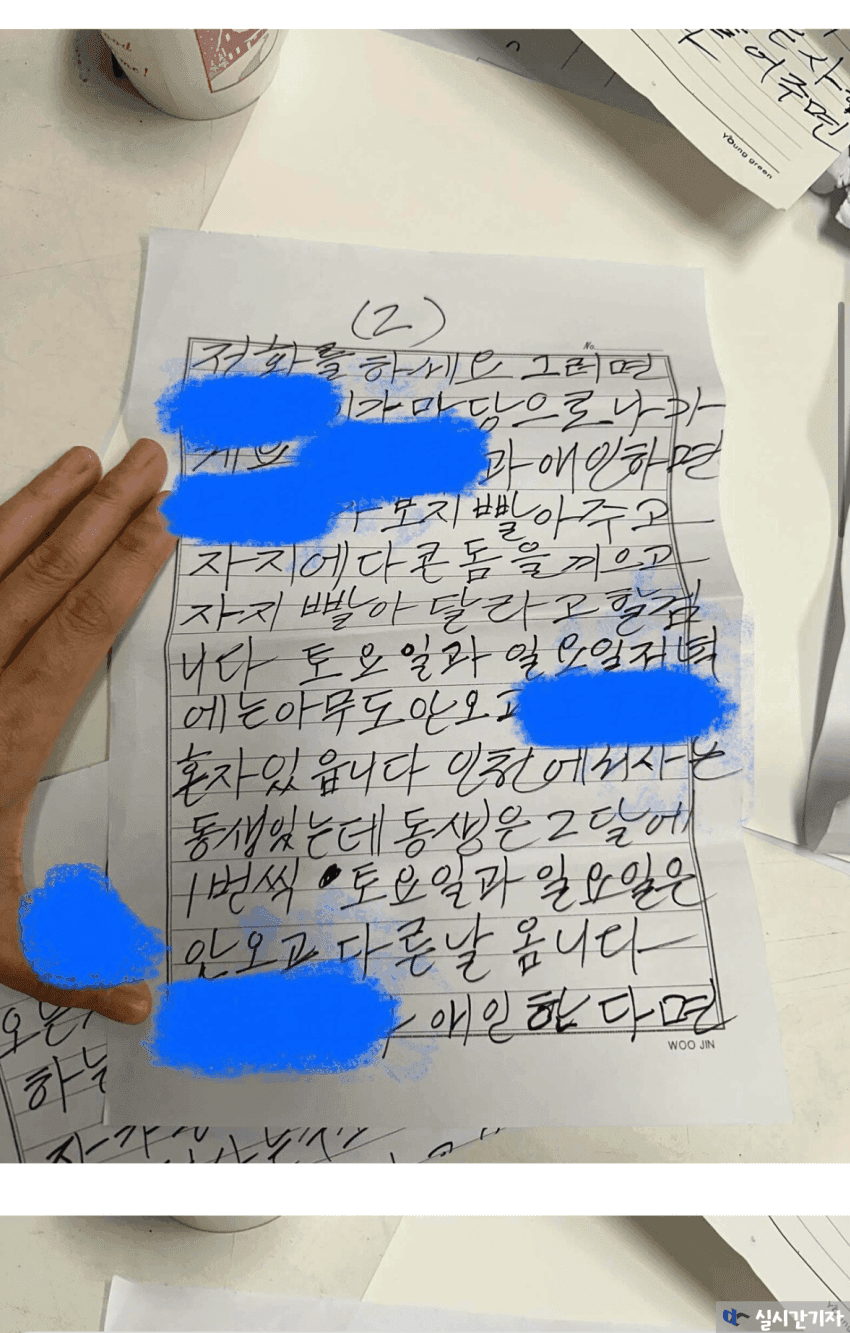 young green
(2)
No.
전화를 하세요 그러면
가 마담으로 나가
과 애인하면
보지 빨아주고
자지에다 콘돔을 끼우고
자지 빨아 달라고 할겁
니다 토요일과 일요일저녁
에는 아무도 안오고
혼자 있읍니다 인천에서 사는
동생있는데 동생은 2달에
1번씩 토요일과 일요일은
안오고 다른날 옵니다
애인 한다면
WOO JIN
실시간기자